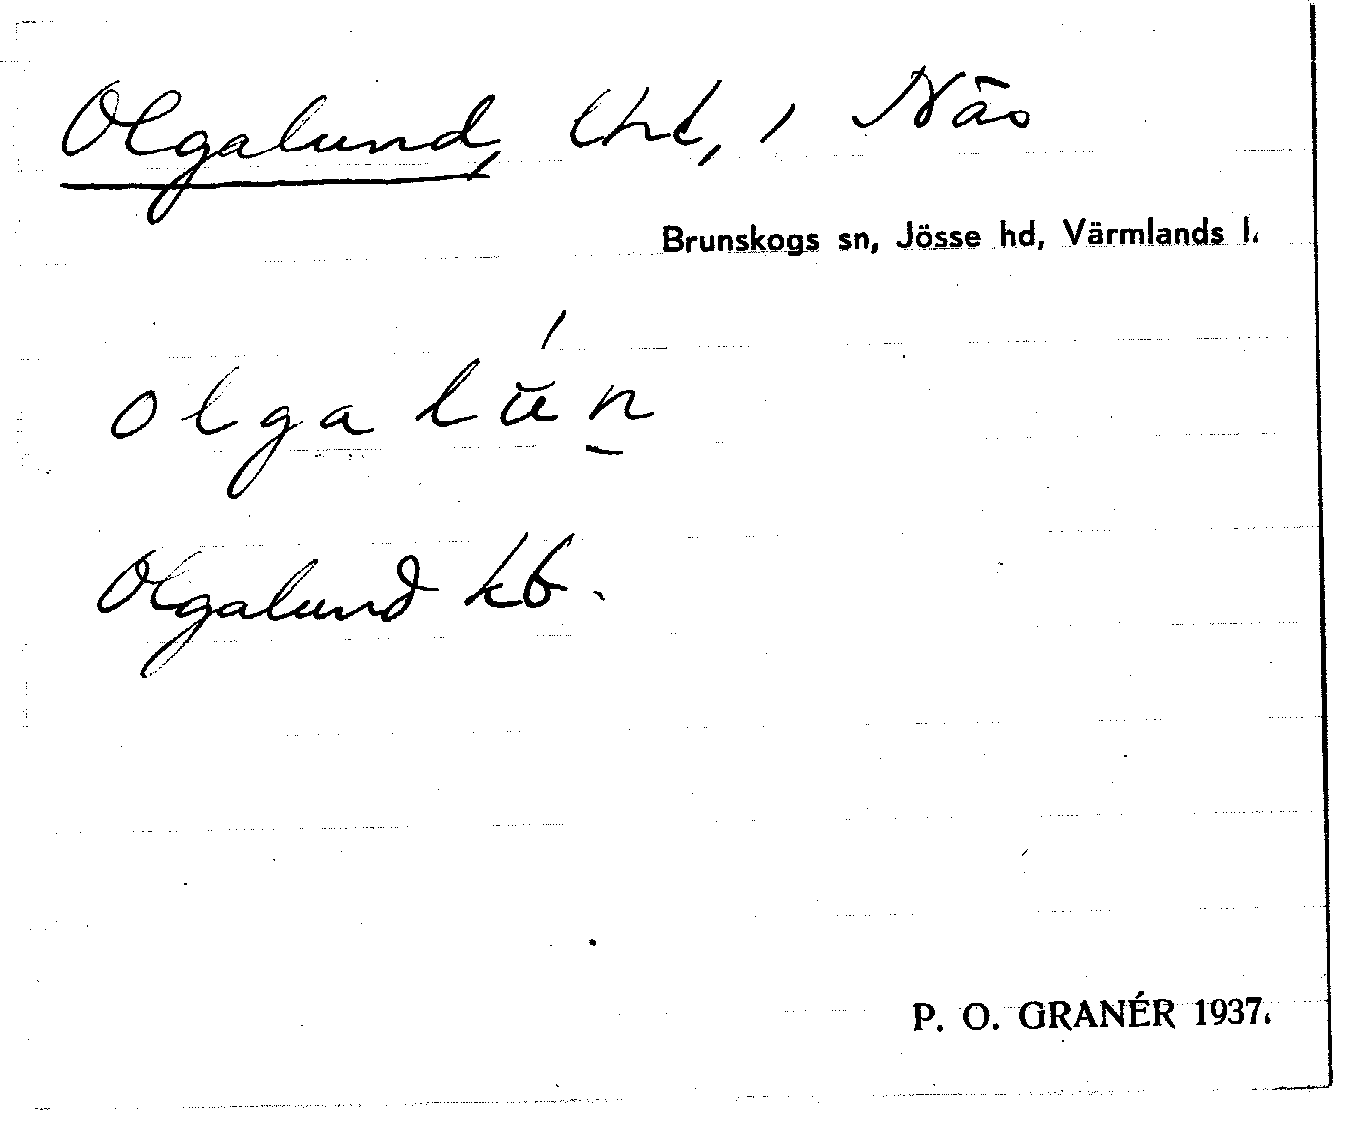 Olgalund, lht, i Näs
Brunskogs sn, Jösse hd, Värmlands l.
olgalŭ́n̲
Olgalund kb.
P. O. GRANÉR 1937.